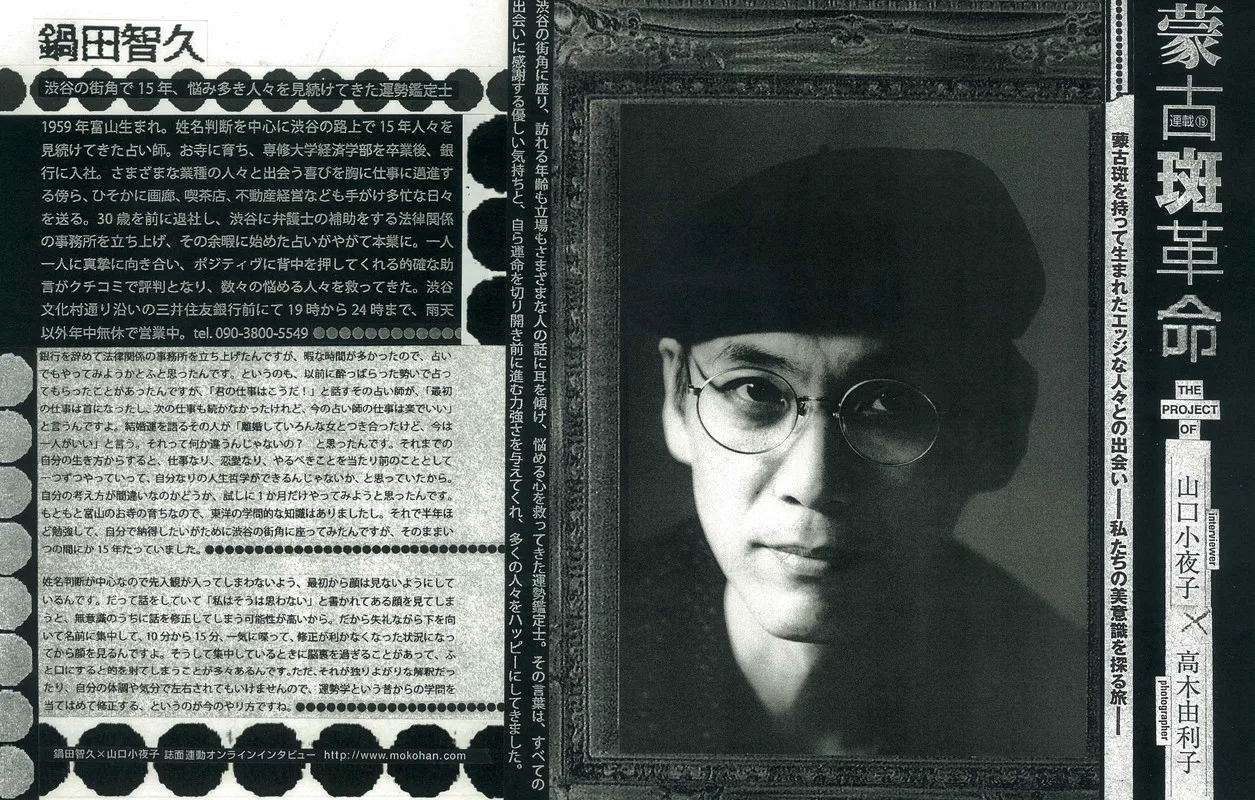 蒙古斑革命
連載⑲
THE
PROJECT
OF
山口小夜子×高木由利子
interviewer
photographer
蒙古斑を持って生まれたエッジな人々との出会い――私たちの美意識を探る旅――
渋谷の街角に座り、訪れる年齢も立場もさまざまな人の話に耳を傾け、悩める心を救ってきた運勢鑑定士。その言葉は、すべての
出会いに感謝する優しい気持ちと、自ら運命を切り開き前に進む力強さを与えてくれ、多くの人々をハッピーにしてきました。
鍋田智久
渋谷の街角で15年、悩み多き人々を見続けてきた運勢鑑定士
1959年富山生まれ。姓名判断を中心に渋谷の路上で15年人々を
見続けてきた占い師。お寺に育ち、専修大学経済学部を卒業後、銀
行に入社。さまざまな業種の人々と出会う喜びを胸に仕事に邁進す
る傍ら、ひそかに画廊、喫茶店、不動産経営なども手がけ多忙な日々
を送る。30歳を前に退社し、渋谷に弁護士の補助をする法律関係
の事務所を立ち上げ、その余暇に始めた占いがやがて本業に。一人
一人に真摯に向き合い、ポジティヴに背中を押してくれる的確な助
言がクチコミで評判となり、数々の悩める人々を救ってきた。渋谷
文化村通り沿いの三井住友銀行前にて19時から24時まで、雨天
以外年中無休で営業中。tel. 090-3800-5549
銀行を辞めて法律関係の事務所を立ち上げたんですが、暇な時間が多かったので、占い
でもやってみようかとふと思ったんです。というのも、以前に酔っぱらった勢いで占っ
てもらったことがあったんですが、「君の仕事はこうだ！」と話すその占い師が、「最初
の仕事は首になったし、次の仕事も続かなかったけれど、今の占い師の仕事は楽でいい」
と言うんですよ。結婚運を語るその人が「離婚していろんな女とつき合ったけど、今は
一人がいい」と言う。それって何か違うんじゃないの？　と思ったんです。それまでの
自分の生き方からすると、仕事なり、恋愛なり、やるべきことを当たり前のこととして
一つずつやっていって、自分なりの人生哲学ができるんじゃないか、と思っていたから。
自分の考え方が間違いなのかどうか、試しに1か月だけやってみようと思ったんです。
もともと富山のお寺の育ちなので、東洋の学問的な知識はありましたし。それで半年ほ
ど勉強して、自分で納得したいがために渋谷の街角に座ってみたんですが、そのままい
つの間にか15年たっていました。
姓名判断が中心なので先入観が入ってしまわないよう、最初から顔は見ないようにして
いるんです。だって話をしていて「私はそうは思わない」と書かれてある顔を見てしま
うと、無意識のうちに話を修正してしまう可能性が高いから。だから失礼ながら下を向
いて名前に集中して、10分から15分、一気に喋って、修正が利かなくなった状況になっ
てから顔を見るんですよ。そうして集中しているときに脳裏を過ぎることがあって、ふ
と口にすると的を射てしまうことが多々あるんです。ただ、それが独りよがりな解釈だっ
たり、自分の体調や気分で左右されてもいけませんので、運勢学という昔からの学問を
当てはめて修正する、というのが今のやり方ですね。
鍋田智久×山口小夜子 誌面連動オンラインインタビュー　http://www.mokohan.com